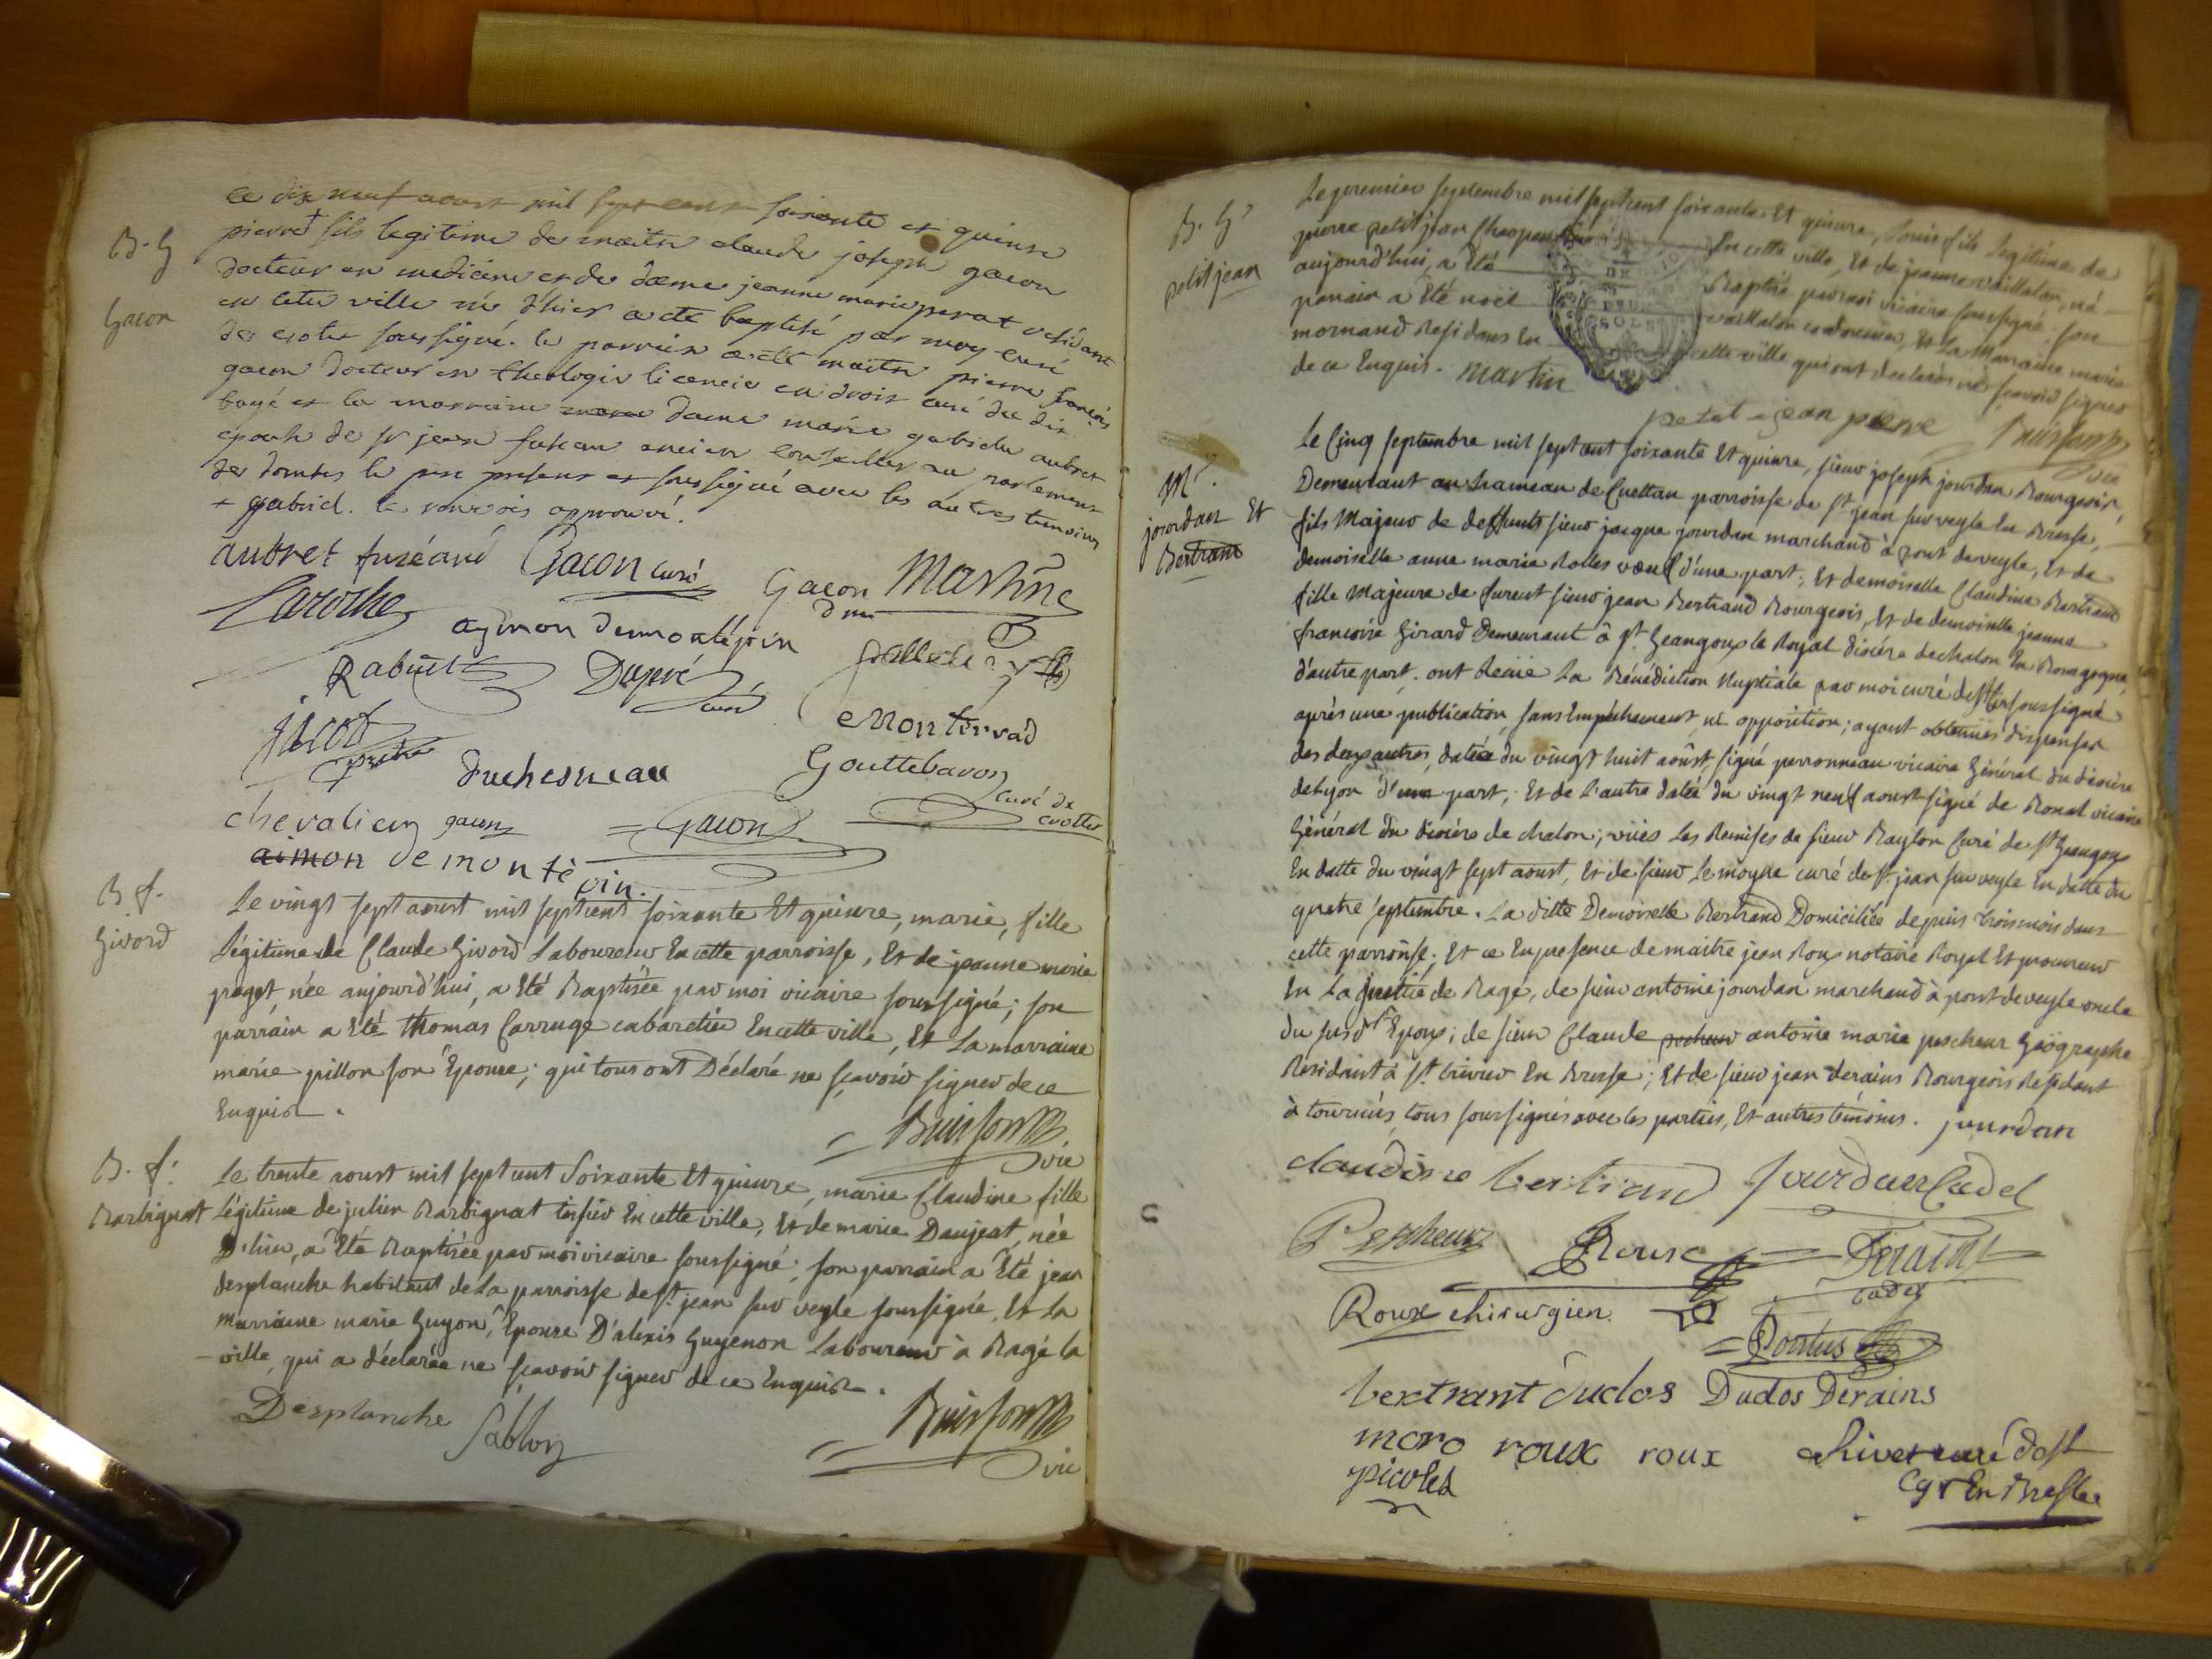 B. G
Gacon
Ce dix neuf aoust mil sept cent soixante et quinze
pierre + fils legitime de maitre claude joseph gacon
docteur en medicine et de dame jeanne marie perat residant
en cette ville né d'hier a eté baptisé par moy curé
de crotet soussigné. le parrein a eté maitre pierre françois
gacon docteur en theologie licencié en droit curé du dit
bagé et la marreine dame marie gabrielle aubret
epouse de sr jean fuseau ancien conseiller au parlement
de dombes le pere present et soussigné avec les autres temoins
+ gabriel. le renvois approuvé.
aubret fuzéaud Gacon curé Gacon dm Martine
Laroche aymon demontépin
Rabuel Dupré curé
jacob ptre emonterrad
duchesneau Gouttebaron curé de crottet
chevalier gacon Gacon
aimon de montépin.
B. f.
Givord
Le vingt sept aoust mil sept cent soixante Et quinze, marie, fille
Légitime de Claude Givord Laboureur En cette parroisse, Et de jeanne marie
paget, née aujourd'hui, a Eté Baptisée par moi vicaire soussigné; son
parrain a Eté thomas Carruge cabaretier En cette ville, Et La marraine
marie pillon son Epouse; qui tous ont Déclaré ne sçavoir signer de ce
Enquis.
Buisson vic
B. f.
Barbignat
Le trente aoust mil sept cent Soixante Et quinze, marie Claudine fille
Légitime de julien Barbignat tissier En cette ville, Et de marie Daujeat, née
D'hier, a Eté Baptisée par moi vicaire soussigné; son parrain a Eté jean
desplanche habitant de La parroisse de st. jean sur veyle soussigné, Et La
marraine marie Guyon, Epouse D'alexis Guyenon Laboureur à Bagé la
ville, qui a déclarée ne sçavoir signer de ce Enquise.
Desplanche Sablon Buisson vic
B. G
petitjean
Le premier septembre mil sept cent soixante Et quinze, Louis fils Légitime de
pierre petitjean En cette ville, Et de jeanne vaillalon, né
aujourd'hui, a Eté Baptisé par moi vicaire soussigné. son
parrain a Eté noël vaillalon cordonnier, Et La Marraine marie
mornand Résidans En cette ville qui ont declarés ne sçavoir signer
de ce Enquis. martin
petit-jean pierre Buisson vic
M.
jourdan Et
Bertrand
Le Cinq septembre mil sept cent soixante Et quinze, sieur joseph jourdan Bourgeois,
Demeurant au hameau de Cuettan parroisse de st. jean sur veyle En Bresse,
fils Majeur de deffunts sieur jacque jourdan marchand à pont de veyle, Et de
demoiselle anne marie Rolles d'une part; Et demoiselle Claudine Bertrand
fille Majeure de furent sieur jean Bertrand Bourgeois, Et de demoiselle jeanne
francoise Girard Demeurant à st. Geangoux le Royal diocése de chalon En Bourgogne
d'autre part. ont Recüe La Bénédiction Nuptiale par moi curé soussigné
après une publication, sans Empêchement, ni opposition; ayant obtenues dispenses
des deux autres, datée du vingt huit aoûst signé perronneau vicaire Général du diocèse
de Lyon d'une part; Et de L'autre datée du vingt neuf aoust signé de Romal vicaire
Général du diocése de chalon; vües Les Remises de sieur Baylon Curé de st. Geangoux
En datte du vingt sept aoust, Et de sieur Le moyne curé de st. jean sur veyle En datte du
quatre septembre. La ditte Demoiselle Bertrand Domiciliée depuis trois mois dans
cette parroisse; Et ce En presence de maitre jean Roux notaire Royal Et procureur
En La justice de Bagé, de sieur antoine jourdan marchand à pont de veyle oncle
du susdt Epoux; de sieur Claude pecheur antoine marie pescheur Géographe
Residant à st. trivier En Bresse; Et de sieur jean derains Bourgeois Résidant
à tournus, tous soussignés avec les parties, Et autres témoins. jourdan
claudine bertrand Jourdan Cadet
Pescheur Roux Deraint cadet
Roux chirurgien Pontus
bertrant dudos Dudos Derains
moro roux roux chivet curé
picolet En Bresse